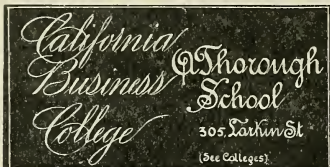 California
Business
College
A Thorough
School
305, Larkin St
(See Colleges)